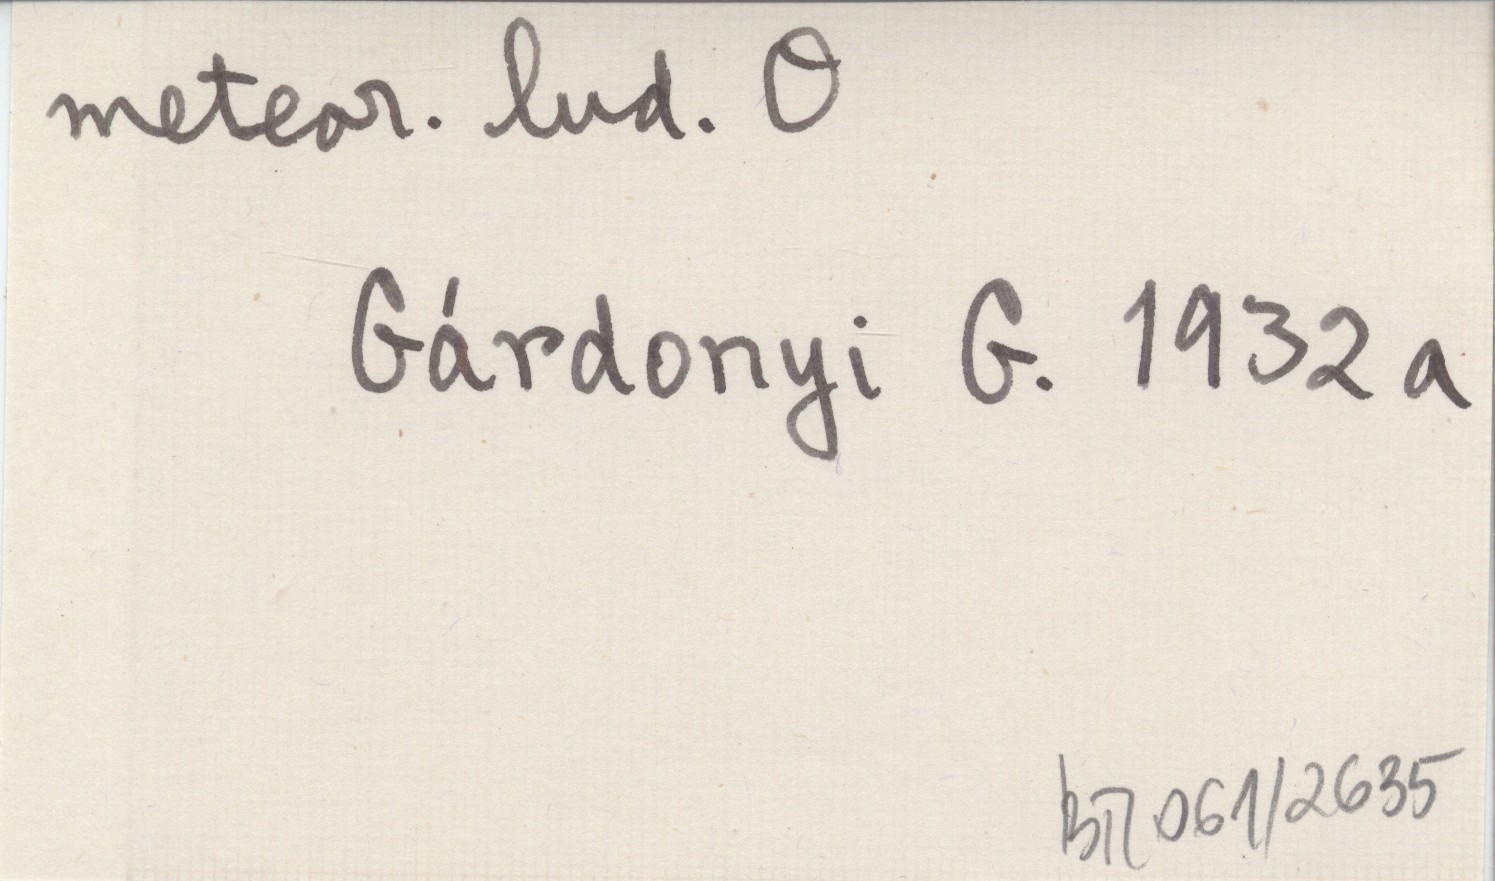 meteor. lud. O
Gárdonyi G. 1932 a
061/2635